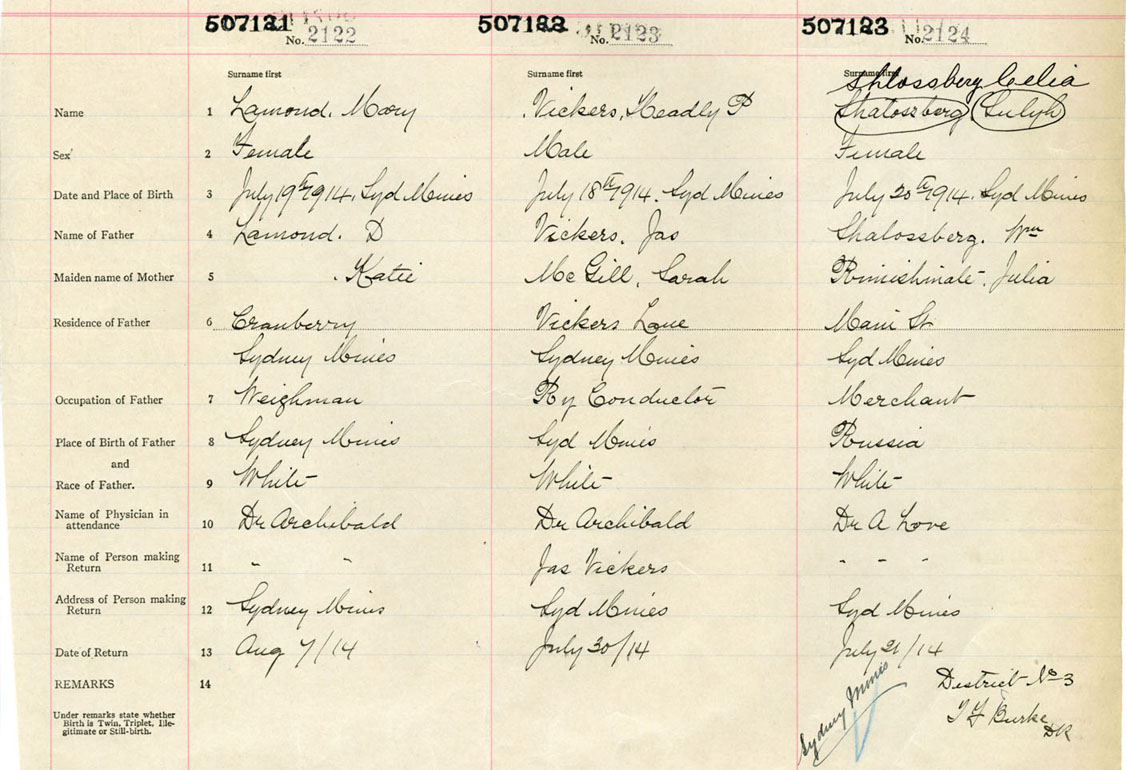 507121 507122 507123
No. 2122 No. 2123 No. 2124
Surname first Surname first Surname first
Shlossberg Celia
Name 1 Lamond. Mary Vickers, Headly P Shalossberg
Sex 2 Female Male Female
Date and Place of Birth 3 July 19th 1914. Syd Mines July 18th 1914. Syd Mines July 20th 1914. Syd Mines
Name of Father 4 Lamond. D Vickers. Jas Shalossberg. Wm
Maiden name of Mother 5 . Katie McGill, Sarah Julia
Residence of Father 6 Cranberry Vickers Lane Main St
Sydney Mines Sydney Mines Syd Mines
Occupation of Father 7 Weighman Ry Conductor Merchant
Place of Birth of Father 8 Sydney Mines Syd Mines Russia
and
Race of Father. 9 White White White
Name of Physician in
attendance 10 Dr Archibald Dr Archibald Dr A Love
Name of Person making
Return 11 " " Jas Vickers " " "
Address of Person making
Return 12 Sydney Mines Syd Mines Syd Mines
Date of Return 13 Aug 7/14 July 30/14 July 21/14
REMARKS 14
District No 3
Under remarks state whether
Birth is Twin, Triplet, Ille-
gitimate or Still-birth.
Sydney Mines
Burke
DR